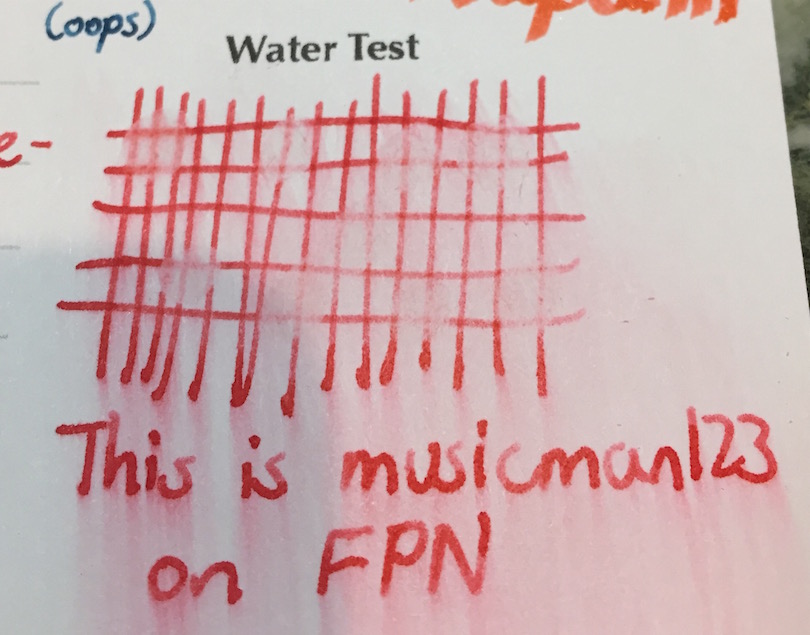 (oops)
Water Test
e-
This is musicman123
on FPN